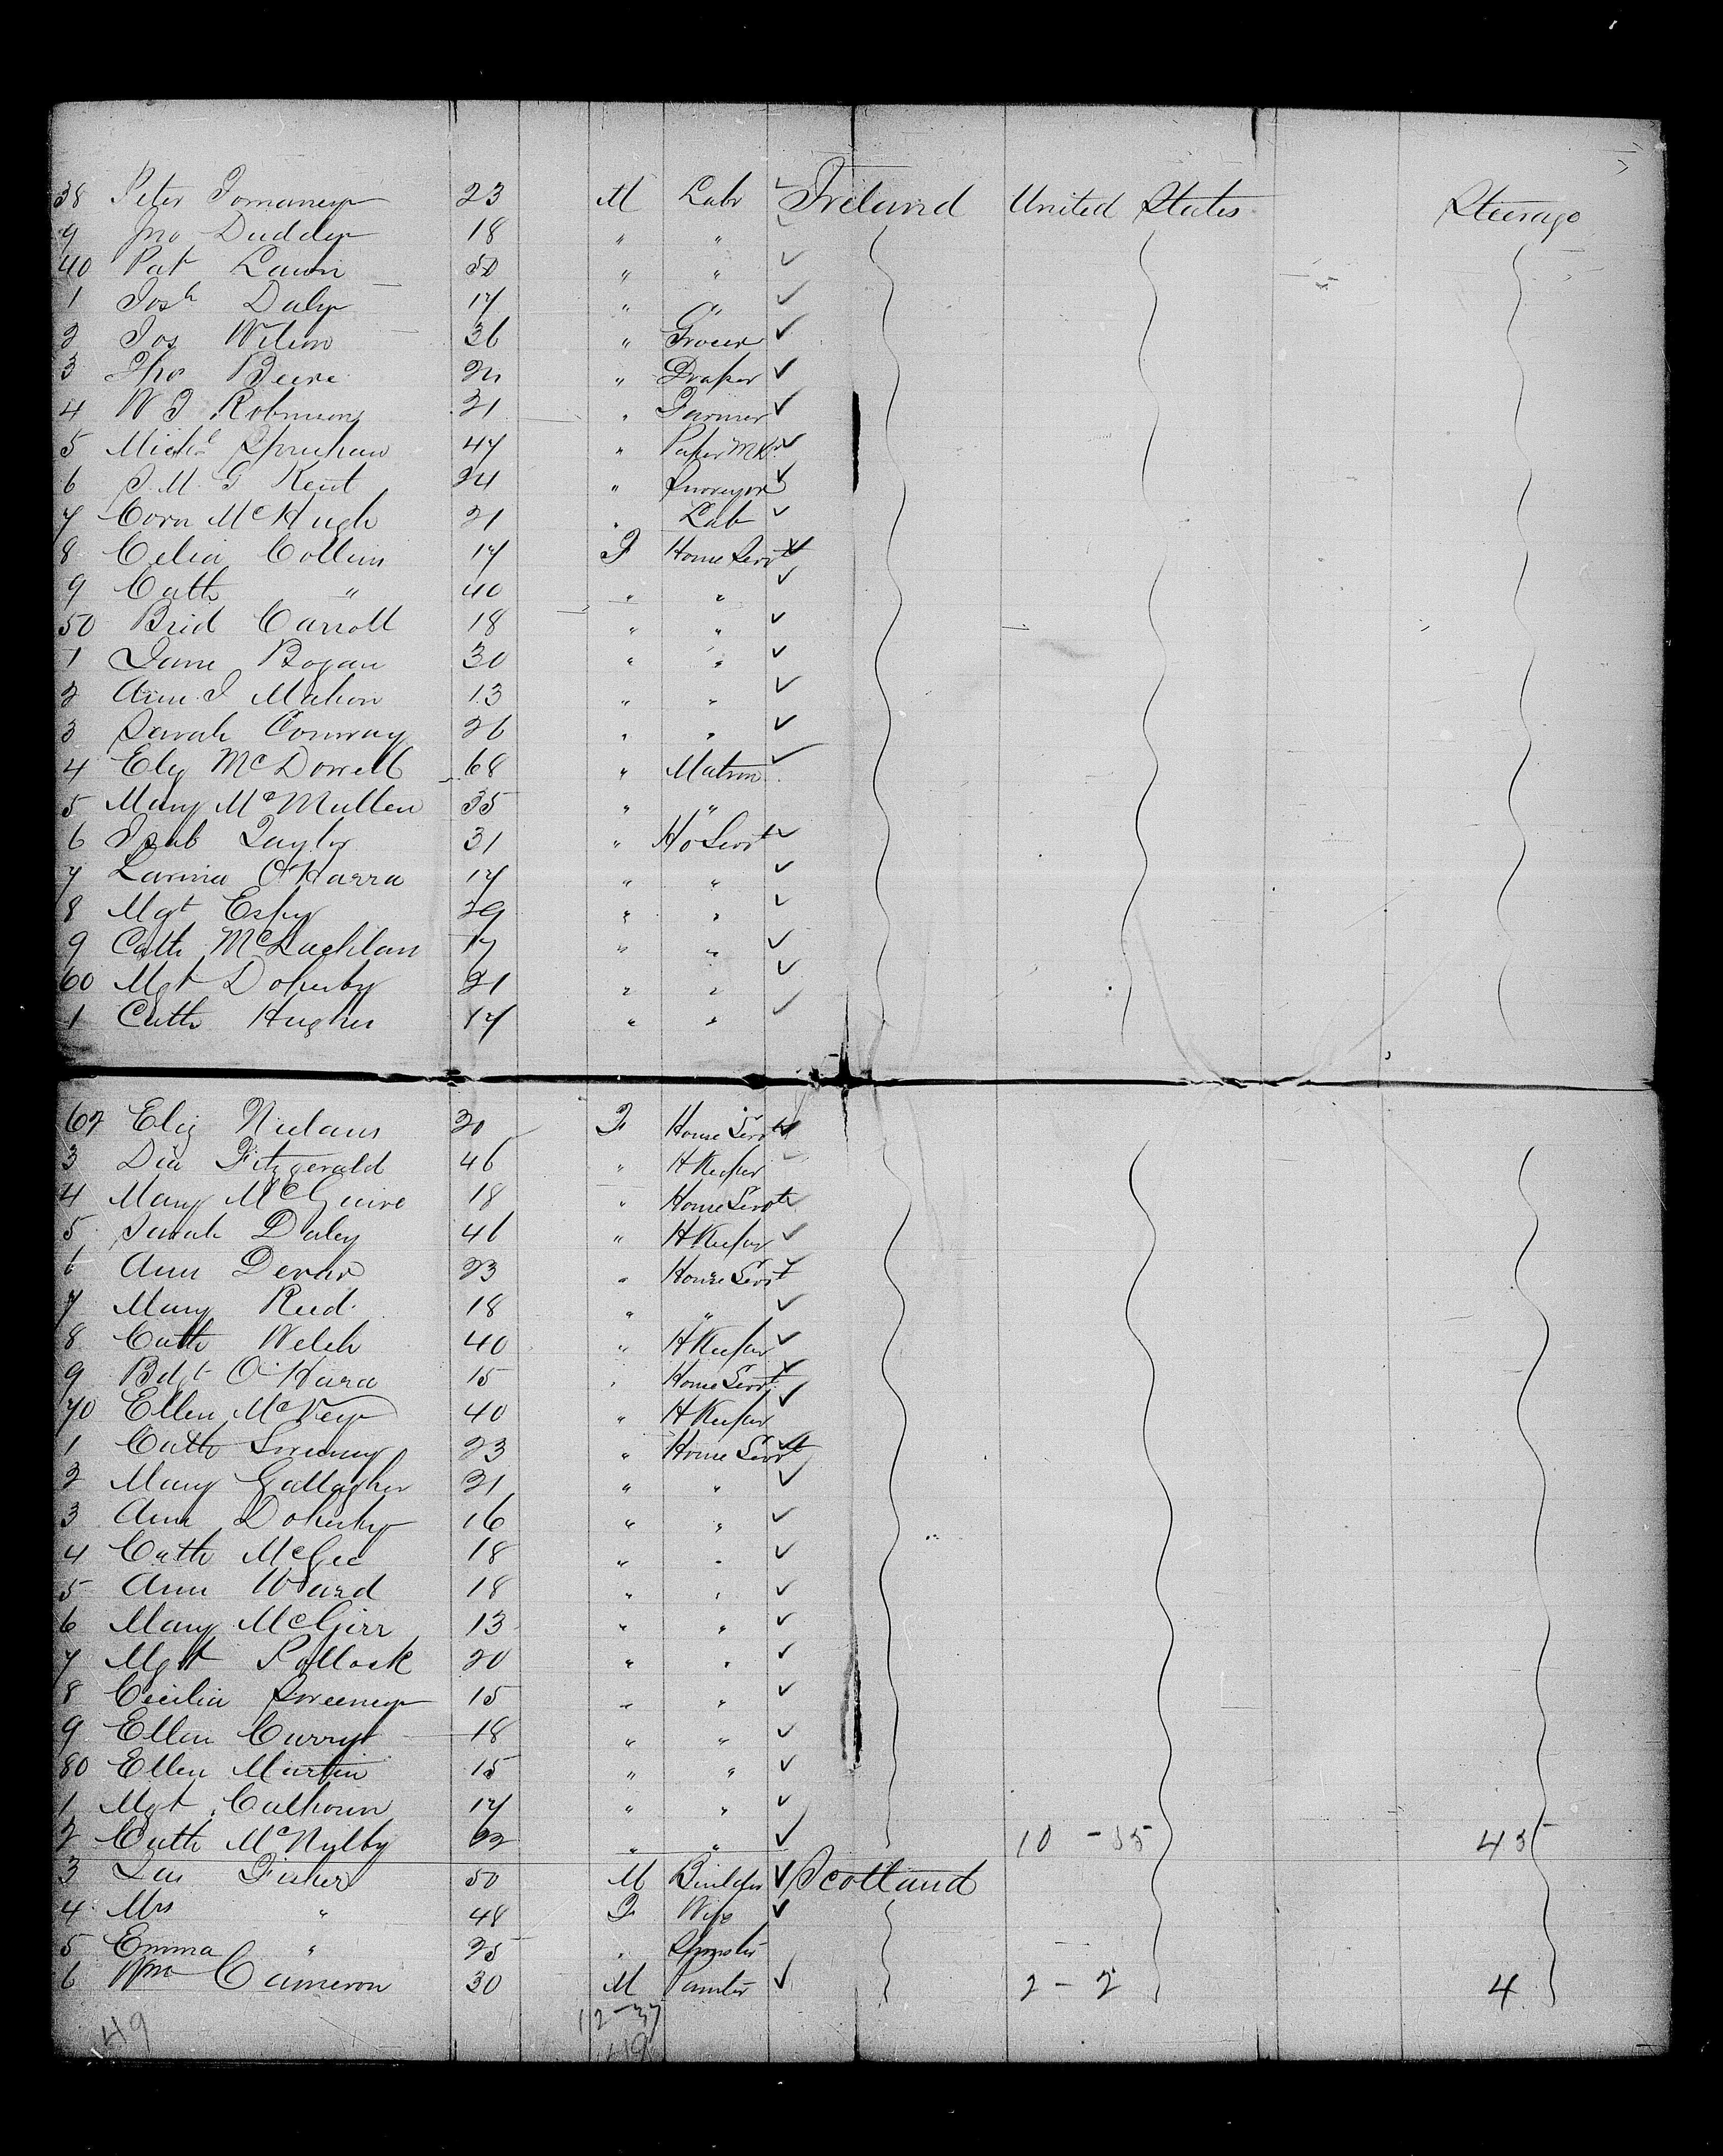 38 Peter Tomaney 23 M Labr Ireland United States Steerage
9 Jno Duddy 18 " "
40 Pat Lawn 50 " "
1 Josh Daly 17 " "
2 Jos Wilson 36 " Grocer
3 Tho Beere " Draper
4 W J Robinson 21 " Farmer
5 Michl 47 " Paper Mkr
6 J. M. G Kent 24 " Surveyor
7 Corn McHugh 21 " Lab
8 Celia Collins 17 F House Servt
9 Cath " 40 " "
50 Brid Carroll 18 " "
1 Jane Bogan 30 " "
2 Ann J Mahon 13 " "
3 Sarah Conway 26 " "
4 Eliz McDowell 68 " Matron
5 Mary McMullen 35 " "
6 Isab Taylor 31 " Ho Servt
7 Lavina O'Harra 17 " "
8 Mgt Espy 29 " "
9 Cath McLachlan 17 " "
60 Mgt Doherty 21 " "
1 Cath Hughes 17 " "
62 Eliz Nielans 20 F House Servt
3 Dia Fitzgerald 46 " H Keeper
4 Mary McGuire 18 " House Servt
5 Sarah Daley 46 " H Keeper
6 Ann Devar 23 " House Servt
7 Mary Reed. 18 " "
8 Cath Welch 40 " H Keeper
9 Bdgt O'Hara 15 " House Servt
70 Ellen McVey 40 " H Keeper
1 Cath Sweeney 23 " House Servt
2 Mary Gallagher 21 " "
3 Ann Doherty 16 " "
4 Cath McGee 18 " "
5 Ann Ward 18 " "
6 Mary McGirr 13 " "
7 Mgt Pollock 20 " "
8 Cecilia Sweeney 15 " "
9 Ellen Curry 18 " "
80 Ellen Martin 15 " "
1 Mgt Calhoun 17 " "
2 Cath McNulty 22 " " 10 - 35 45
3 Jas Fisher 50 M Builder Scotland
4 Mrs " 48 F Wife
5 Emma " 25 " Spinster
6 Wm Cameron 30 M Painter 2 - 2 4
12 - 37
49 49